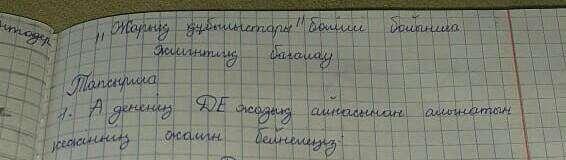 "Жарық құбылыстары" бөлімі бойынша
жиынтық бағалау
Тапсырма
1. А дененің DE жазық айнасынан алынатын
кескіннің жалған бейнелеңіз.